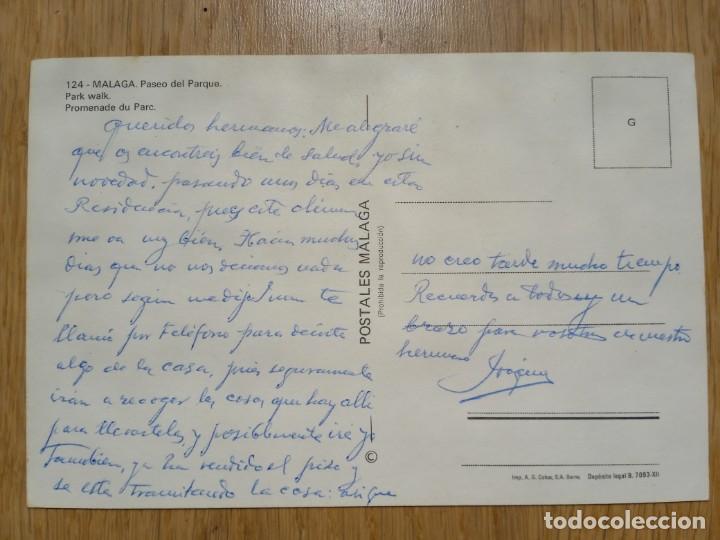 124 - MALAGA. Paseo del Parque.
Park walk.
Promenade du Parc.
G
Queridos hermanos: Me alegraré
que os encontreis bien de salud, yo sin
novedad. pasando unos dias en esta
Residencia, pues este clima
me va muy bien. Hacia muchos
dias que no nos deciamos nada
pero segun me dijo te
llamó por teléfono para decirte
algo de la casa, pues seguramente
irán a recoger las cosas que hay alli
para llevartelas, y posiblemente iré yo
tambien, ya ha vendido el piso y
se esta tramitando la cosa: asi que
no creo tarde mucho tiempo,
Recuerdos a todos y un
brazo para vosotros de vuestro
hermano
POSTALES MALAGA
(Prohibida la reproducción)
©
Imp. A. G. Cobas, S.A. Barna. Depósito legal B. 7093-XII
todocoleccion
todocoleccion.net